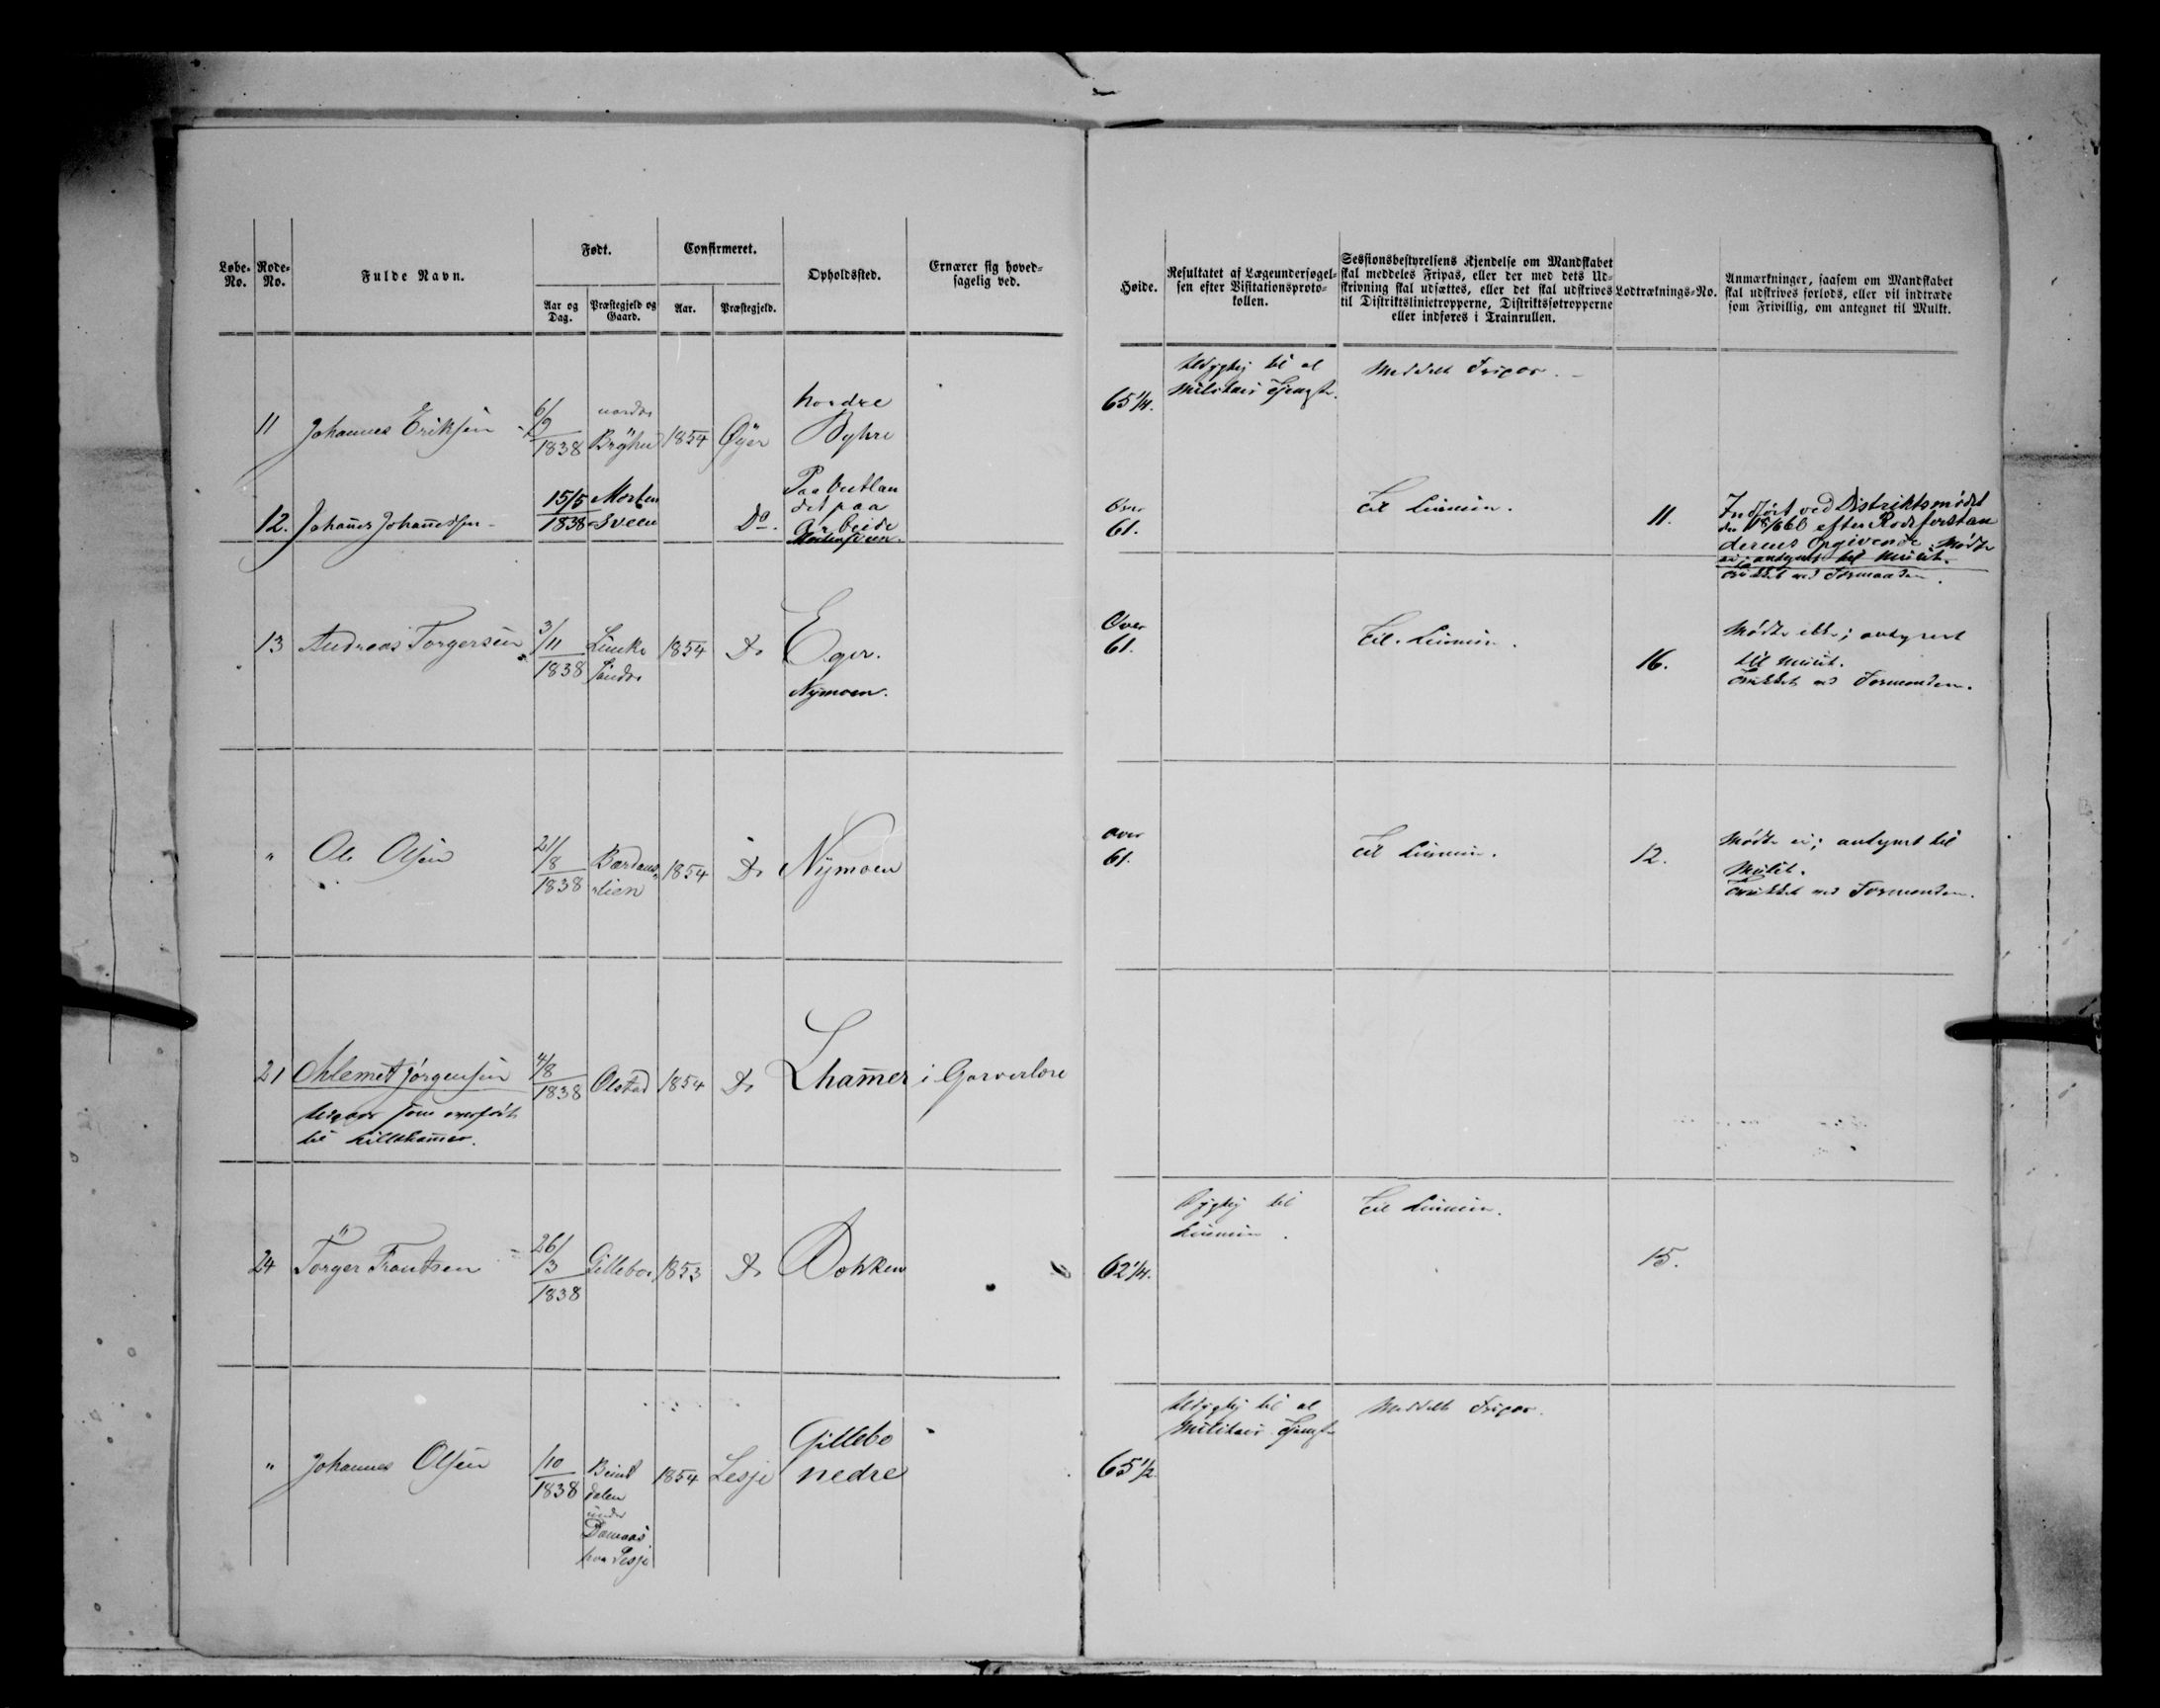 Løbe-No.
Rode-No.
Fulde Navn.
Født.
Aar og Dag.
Præstegjeld og Gaard.
Confirmeret.
Aar.
Præstegjeld.
Opholdssted.
Ernærer sig hoved-
sagelig ved.
Høide.
Resultatet af Lægeundersøgel-
sen efter Visitationsproto-
kollen.
Sessionsbestyrelsens Kjendelse om Mandskabet
skal meddeles Fripas, eller der med dets Ud-
skrivning skal udsættes, eller det skal udskrives
til Distriktslinietropperne, Distriktsfotropperne
eller indføres i Trainrullen.
Lodtræknings-No.
Anmærkninger, saasom om Mandskabet
skal udskrives forlods, eller vil indtræde
som Frivillig, om antegnet til Mulkt.
11 Johannes Eriksen 6/9 1838 nordre 1854 Øyer
nordre
Byhre
65 1/4.
Udygtig til al
Militair Tjeneste.
Meddelt Fripas.
12. Johañes Johañessen 15/5 1838 Morten
Sveen
Do
Paa Vestlan
det paa
Arbeide
Over
61.
Til Linien.
11.
Indført ved Distriktsmødet
efter Rodeforstan
derens Opgivende. Mødte
ei, antegnet til Mulct.
Trukket ved Formanden.
13 Andreas Torgersen 3/11 1838 Lunke
søndre
1854 Do
Eger.
Nymoen.
Over
61.
Til Linien.
16.
Mødte ikke; antegnet
til Mulct.
Trukket ved Formanden.
" Ole Olsen 21/8 1838
lien
1854 Do Nymoen
Over
61.
Til Linien.
12.
Mødte ei; antegnet til
Mulct.
Trukket ved Formanden.
21 Jørgensen 4/8 1838 Olstad 1854 Do Lham̃er i
som overført
til Lillehammer.
24 Torger Frantsen 26/3 1838 Gillebo 1853 Do Dokken
62 1/4.
Dygtig til
Linien.
Til Linien.
15.
" Johannes Olsen /10 1838
dalen
under
Lesje
1854 Lesje
Gillebo
nedre
65 1/2
Udygtig til al
Militair Tjeneste
Meddelt Fripas.